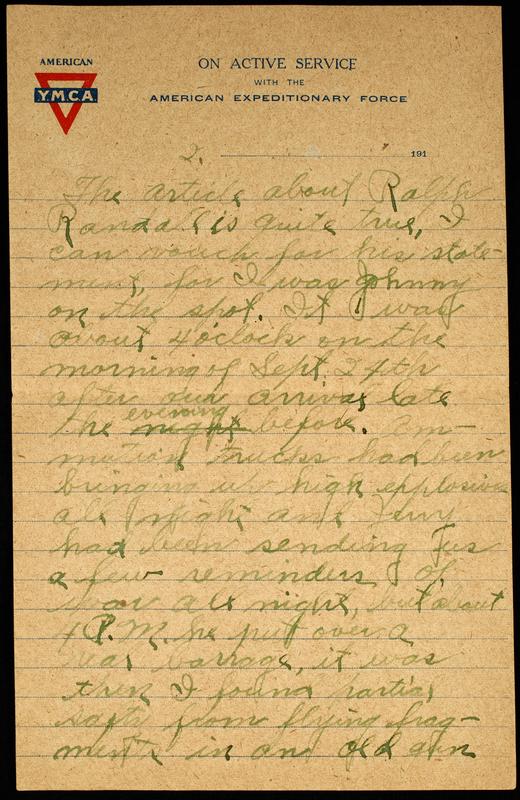 AMERICAN
YMCA
ON ACTIVE SERVICE
WITH THE
AMERICAN EXPEDITIONARY FORCE
2. 191
The article about Ralph
Randall is quite true, I
can vouch for his state-
ment, for I was Johnny
on the spot. It was
about 4 o'clock on the
morning of Sept. 24th
after our arrival late
the night evening before. Am-
mution trucks had been
bringing up high explosives
all night and Jerry
had been sending us
a few reminders of
war all night, but about
4 P.M. he put over a
real barrage, it was
then I found partial
safty from flying frag-
ments in an old gun